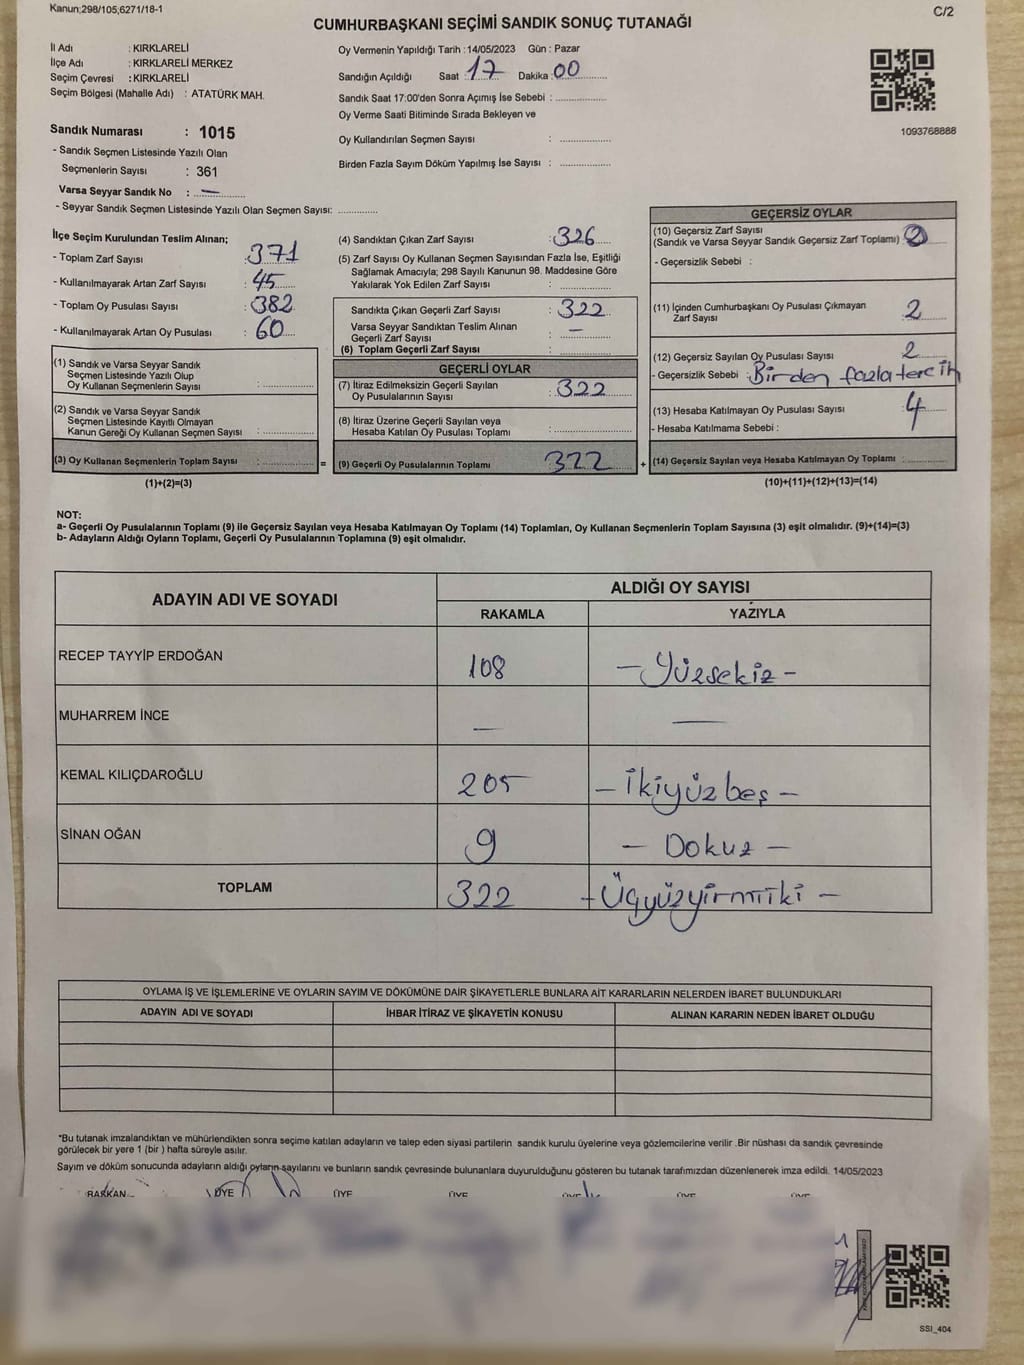 Kanun;298/105,6271/18-1
C/2
CUMHURBAŞKANI SEÇİMİ SANDIK SONUÇ TUTANAĞI
İl Adı : KIRKLARELİ
İlçe Adı : KIRKLARELİ MERKEZ
Seçim Çevresi : KIRKLARELİ
Seçim Bölgesi (Mahalle Adı) : ATATÜRK MAH.
Sandık Numarası : 1015
- Sandık Seçmen Listesinde Yazılı Olan
Seçmenlerin Sayısı : 361
Varsa Seyyar Sandık No : —
- Seyyar Sandık Seçmen Listesinde Yazılı Olan Seçmen Sayısı: ..............
Oy Vermenin Yapıldığı Tarih : 14/05/2023 Gün : Pazar
Sandığın Açıldığı Saat : 17 Dakika : 00
Sandık Saat 17:00'den Sonra Açımış İse Sebebi : ..............
Oy Verme Saati Bitiminde Sırada Bekleyen ve
Oy Kullandırılan Seçmen Sayısı : ..............
Birden Fazla Sayım Döküm Yapılmış İse Sayısı : ..............
1093768888
İlçe Seçim Kurulundan Teslim Alınan;
- Toplam Zarf Sayısı : 371
- Kullanılmayarak Artan Zarf Sayısı : 45
- Toplam Oy Pusulası Sayısı : 382
- Kullanılmayarak Artan Oy Pusulası : 60
(1) Sandık ve Varsa Seyyar Sandık
Seçmen Listesinde Yazılı Olup
Oy Kullanan Seçmenlerin Sayısı : ..............
(2) Sandık ve Varsa Seyyar Sandık
Seçmen Listesinde Kayıtlı Olmayan
Kanun Gereği Oy Kullanan Seçmen Sayısı : ..............
(3) Oy Kullanan Seçmenlerin Toplam Sayısı : ..............
(1)+(2)=(3)
(4) Sandıktan Çıkan Zarf Sayısı : 326
(5) Zarf Sayısı Oy Kullanan Seçmen Sayısından Fazla İse, Eşitliği
Sağlamak Amacıyla; 298 Sayılı Kanunun 98. Maddesine Göre
Yakılarak Yok Edilen Zarf Sayısı : ..............
Sandıkta Çıkan Geçerli Zarf Sayısı : 322
Varsa Seyyar Sandıktan Teslim Alınan
Geçerli Zarf Sayısı : —
(6) Toplam Geçerli Zarf Sayısı : ..............
GEÇERLİ OYLAR
(7) İtiraz Edilmeksizin Geçerli Sayılan
Oy Pusulalarının Sayısı : 322
(8) İtiraz Üzerine Geçerli Sayılan veya
Hesaba Katılan Oy Pusulası Toplamı : ..............
= (9) Geçerli Oy Pusulalarının Toplamı 322 +
GEÇERSİZ OYLAR
(10) Geçersiz Zarf Sayısı
(Sandık ve Varsa Seyyar Sandık Geçersiz Zarf Toplamı) :
- Geçersizlik Sebebi :
(11) İçinden Cumhurbaşkanı Oy Pusulası Çıkmayan
Zarf Sayısı : 2
(12) Geçersiz Sayılan Oy Pusulası Sayısı : 2
- Geçersizlik Sebebi : Birden fazla tercih
(13) Hesaba Katılmayan Oy Pusulası Sayısı : 4
- Hesaba Katılmama Sebebi :
(14) Geçersiz Sayılan veya Hesaba Katılmayan Oy Toplamı : ..............
(10)+(11)+(12)+(13)=(14)
NOT:
a- Geçerli Oy Pusulalarının Toplamı (9) ile Geçersiz Sayılan veya Hesaba Katılmayan Oy Toplamı (14) Toplamları, Oy Kullanan Seçmenlerin Toplam Sayısına (3) eşit olmalıdır. (9)+(14)=(3)
b- Adayların Aldığı Oyların Toplamı, Geçerli Oy Pusulalarının Toplamına (9) eşit olmalıdır.
ADAYIN ADI VE SOYADI
ALDIĞI OY SAYISI
RAKAMLA YAZIYLA
RECEP TAYYİP ERDOĞAN 108 - Yüzsekiz -
MUHARREM İNCE — —
KEMAL KILIÇDAROĞLU 205 - İkiyüzbeş -
SİNAN OĞAN 9 - Dokuz -
TOPLAM 322 - Üçyüzyirmiiki -
OYLAMA İŞ VE İŞLEMLERİNE VE OYLARIN SAYIM VE DÖKÜMÜNE DAİR ŞİKAYETLERLE BUNLARA AİT KARARLARIN NELERDEN İBARET BULUNDUKLARI
ADAYIN ADI VE SOYADI İHBAR İTİRAZ VE ŞİKAYETİN KONUSU ALINAN KARARIN NEDEN İBARET OLDUĞU
*Bu tutanak imzalandıktan ve mühürlendikten sonra seçime katılan adayların ve talep eden siyasi partilerin sandık kurulu üyelerine veya gözlemcilerine verilir .Bir nüshası da sandık çevresinde
görülecek bir yere 1 (bir ) hafta süreyle asılır.
Sayım ve döküm sonucunda adayların aldığı oyların sayılarını ve bunların sandık çevresinde bulunanlara duyurulduğunu gösteren bu tutanak tarafımızdan düzenlenerek imza edildi. 14/05/2023
BAŞKAN ÜYE ÜYE ÜYE ÜYE ÜYE ÜYE
SSI_404